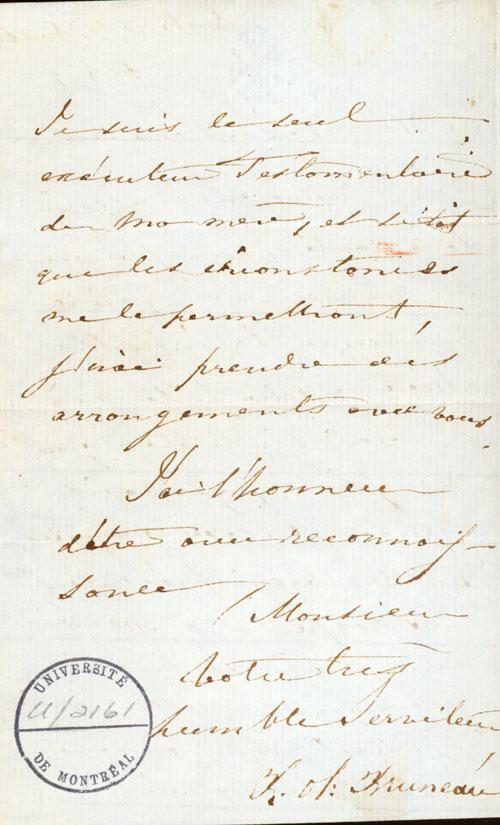 Je suis le seul
exécuteur Testamentaire
de ma mère, et sitôt
que les circonstances
me le permettront,
j'irai prendre des
arrangements avec vous.
J'ai l'honneur
d'être avec reconnois-
sance
Monsieur
Votre très
humble Serviteur
UNIVERSITÉ
U/2161
DE MONTRÉAL
Bruneau